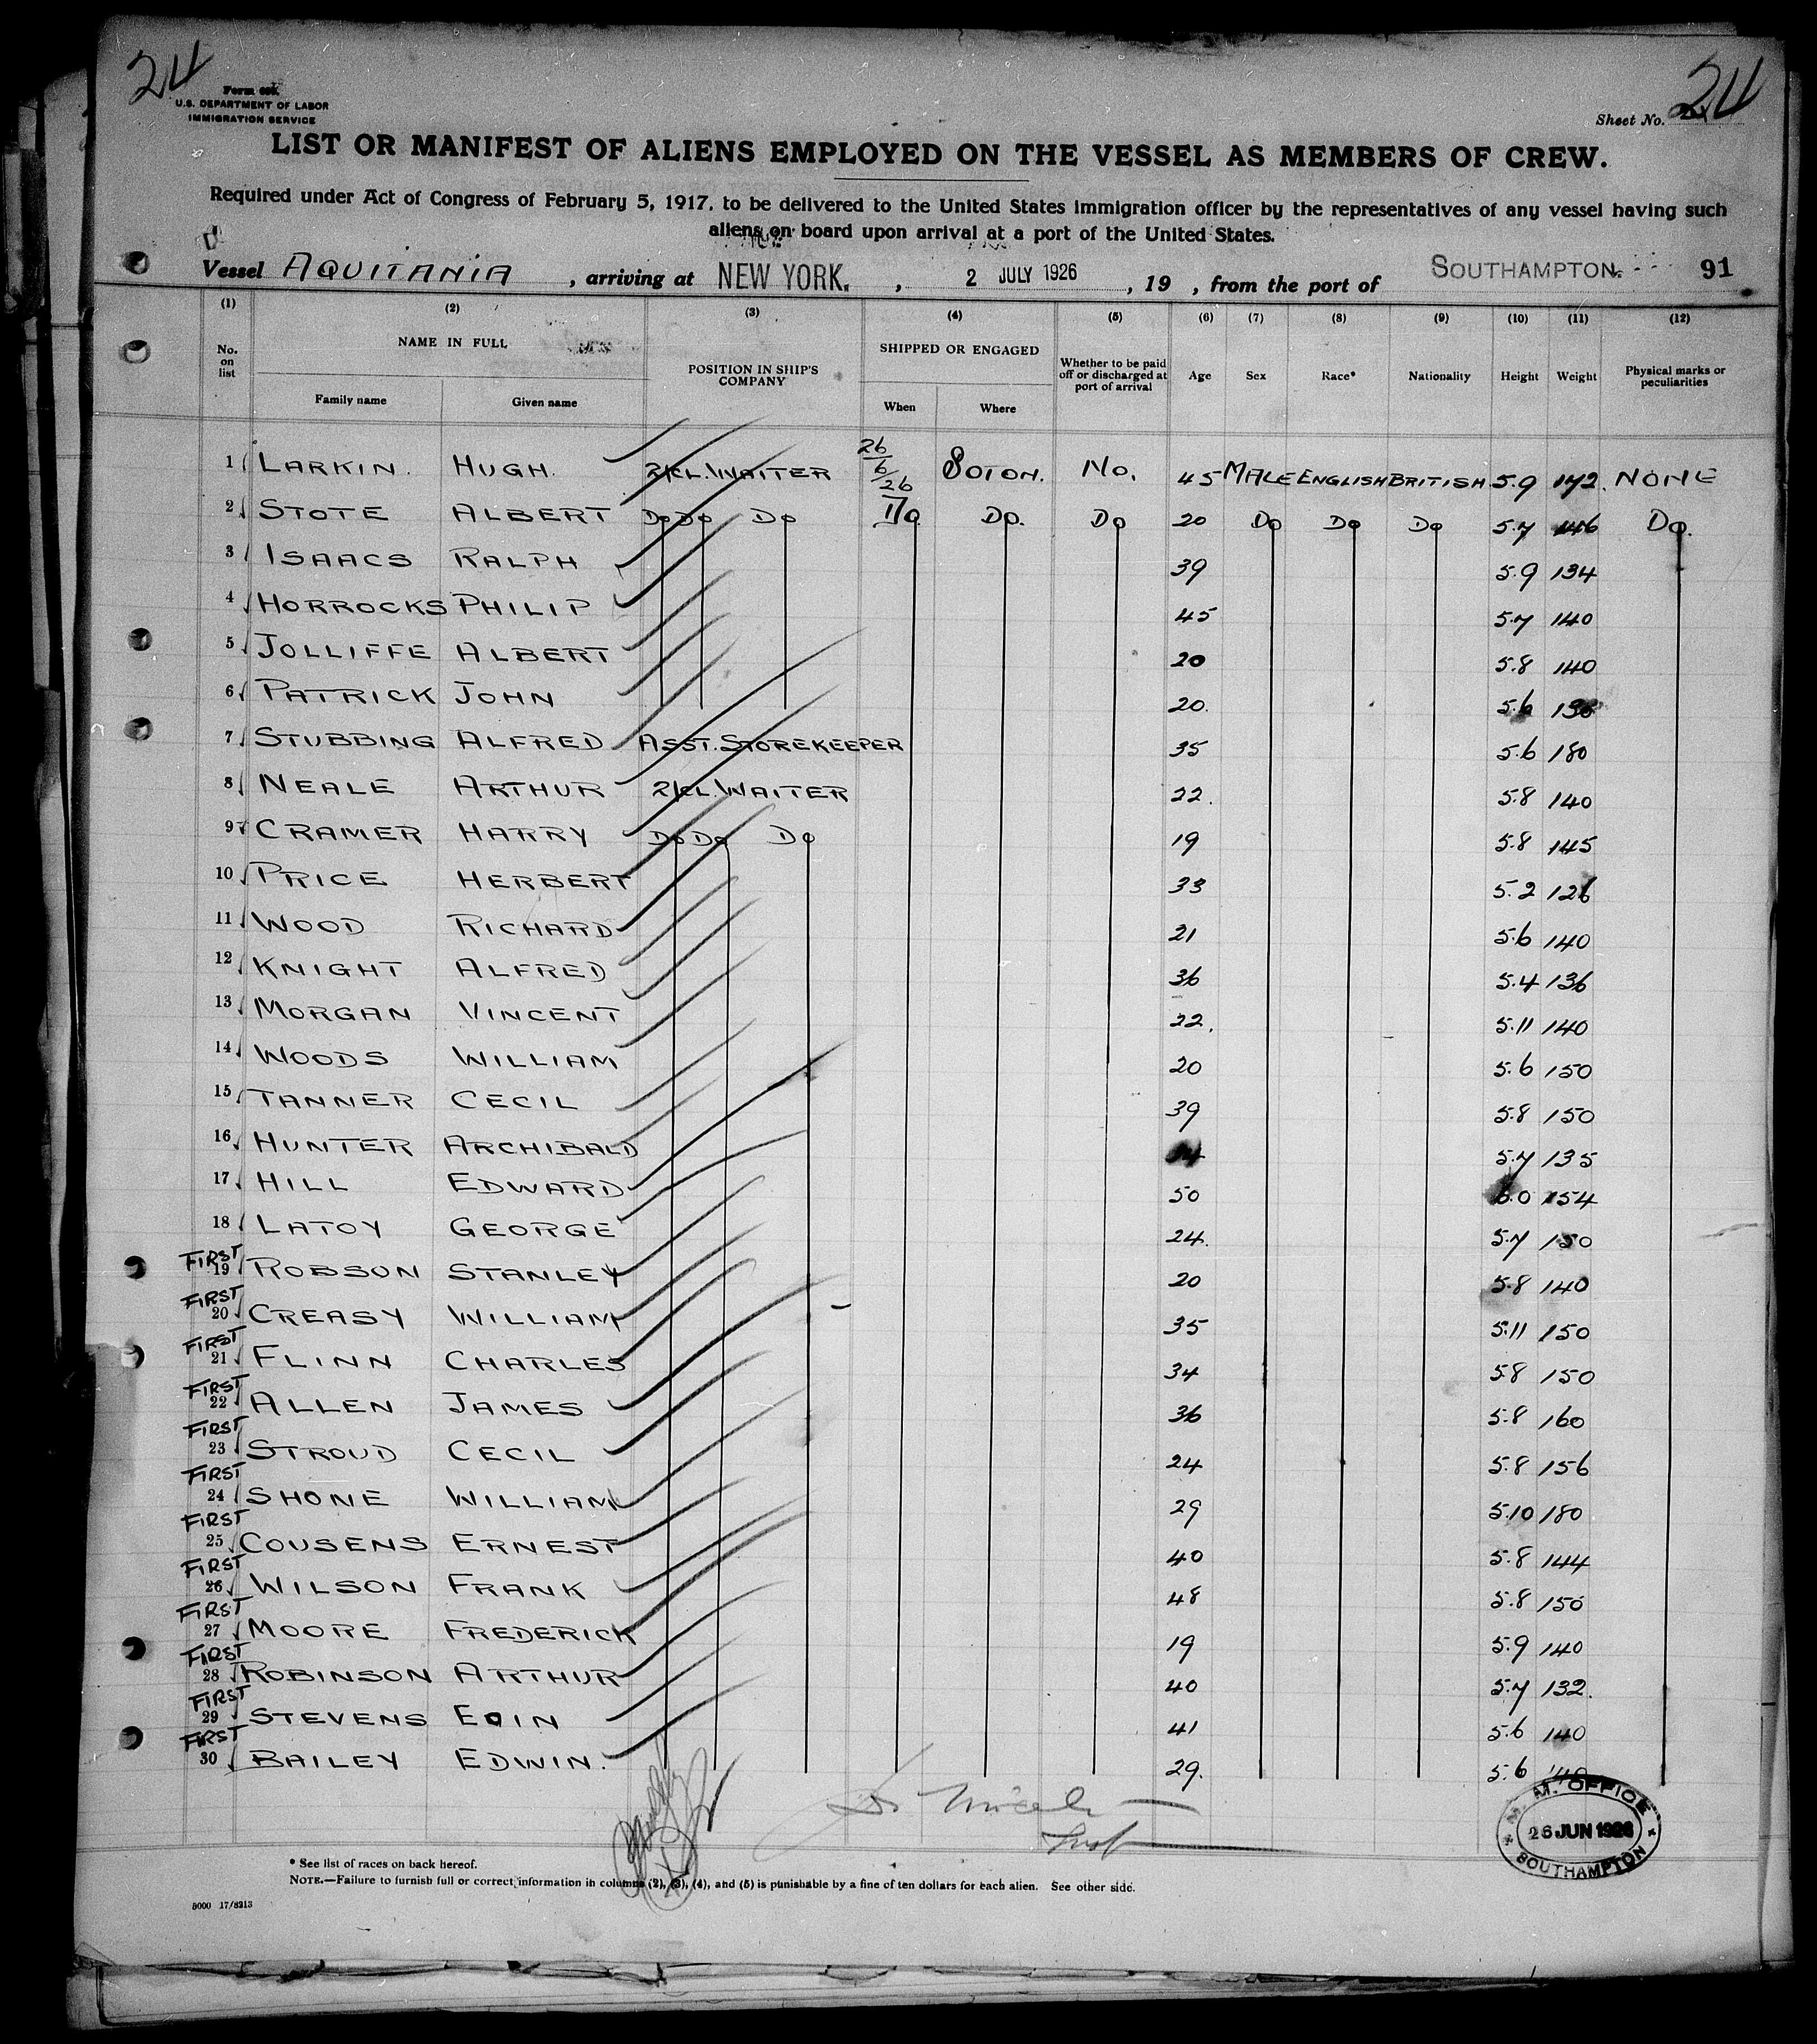 24
24
Form 689.
U.S. DEPARTMENT OF LABOR
IMMIGRATION SERVICE
Sheet No.
LIST OR MANIFEST OF ALIENS EMPLOYED ON THE VESSEL AS MEMBERS OF CREW.
Required under Act of Congress of February 5, 1917, to be delivered to the United States immigration officer by the representatives of any vessel having such
aliens on board upon arrival at a port of the United States.
Vessel AQUITANIA, arriving at NEW YORK., 2 JULY 1926, 19 , from the port of SOUTHAMPTON. 91
(1) (2) (3) (4) (5) (6) (7) (8) (9) (10) (11) (12)
No. on list NAME IN FULL POSITION IN SHIP'S COMPANY SHIPPED OR ENGAGED Whether to be paid off or discharged at port of arrival Age Sex Race* Nationality Height Weight Physical marks or peculiarities
Family name Given name When Where
1 LARKIN. HUGH. 2/CL. WAITER 26/6/26 SOTON. No. 45 MALE ENGLISH BRITISH 5.9 172. NONE
2 STOTE ALBERT Do Do Do Do Do. Do 20 Do Do Do 5.7 146 Do.
3 ISAACS RALPH 39 5.9 134
4 HORROCKS PHILIP 45 5.7 140
5 JOLLIFFE ALBERT 20 5.8 140
6 PATRICK JOHN 20. 5.6
7 STUBBING ALFRED ASST. STOREKEEPER 35 5.6 180
8 NEALE ARTHUR 2/CL. WAITER 22. 5.8 140
9 CRAMER HARRY Do Do Do 19 5.8 145
10 PRICE HERBERT 33 5.2 126
11 WOOD RICHARD 21 5.6 140
12 KNIGHT ALFRED 36 5.4 136
13 MORGAN VINCENT 22. 5.11 140
14 WOODS WILLIAM 20 5.6 150
15 TANNER CECIL 39 5.8 150
16 HUNTER ARCHIBALD 5.7 135
17 HILL EDWARD 50 6.0 154
18 LATOY GEORGE 24. 5.7 150
FIRST 19 ROBSON STANLEY 20 5.8 140
FIRST 20 CREASY WILLIAM 35 5.11 150
FIRST 21 FLINN CHARLES 34 5.8 150
FIRST 22 ALLEN JAMES 36 5.8 160
FIRST 23 STROUD CECIL 24 5.8 156
FIRST 24 SHONE WILLIAM 29 5.10 180
FIRST 25 COUSENS ERNEST 40 5.8 144
FIRST 26 WILSON FRANK 48 5.8 150
FIRST 27 MOORE FREDERICK 19 5.9 140
FIRST 28 ROBINSON ARTHUR 40 5.7 132.
FIRST 29 STEVENS EOIN 41 5.6 140
FIRST 30 BAILEY EDWIN. 29. 5.6 140
M. M. OFFICE
26 JUN 1926
SOUTHAMPTON
* See list of races on back hereof.
NOTE.—Failure to furnish full or correct information in columns (2), (3), (4), and (5) is punishable by a fine of ten dollars for each alien. See other side.
5000 17/8213